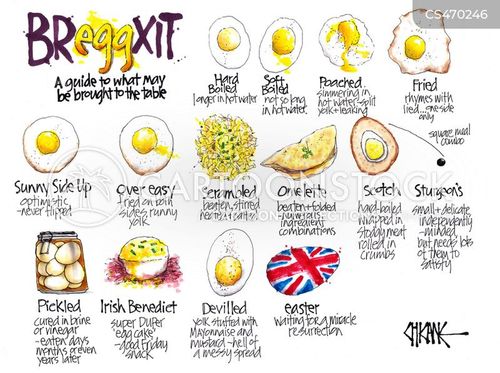 CS470246
BReggXIT
A guide to what may
be brought to the table
Hard
Boiled
longer in hot water
Soft
Boiled
not so long
in hot water
Poached
simmering in
hot water-split
yolk + leaking
Fried
rhymes with
lied...one side
only
Sunny Side Up
optimistic
-never flipped
over easy
fried on both
sides, runny
yolk
Scrambled
beaten, stirred
Omelette
beaten + folded
numerous
ingredient
combinations
Scotch
hard-boiled
wrapped in
stodgy meat
rolled in
crumbs
square meal
combo
Sturgeon's
small + delicate
independently
-minded
but needs lots
of them to
satisfy
Pickled
cured in brine
or vinegar
-eaten days
months or even
years later
Irish Benedict
super duper
'egg cake'
-good Friday
snack
Devilled
yolk stuffed with
Mayonnaise and
mustard -hell of
a messy spread
easter
waiting for a miracle
resurrection
CARTOONSTOCK